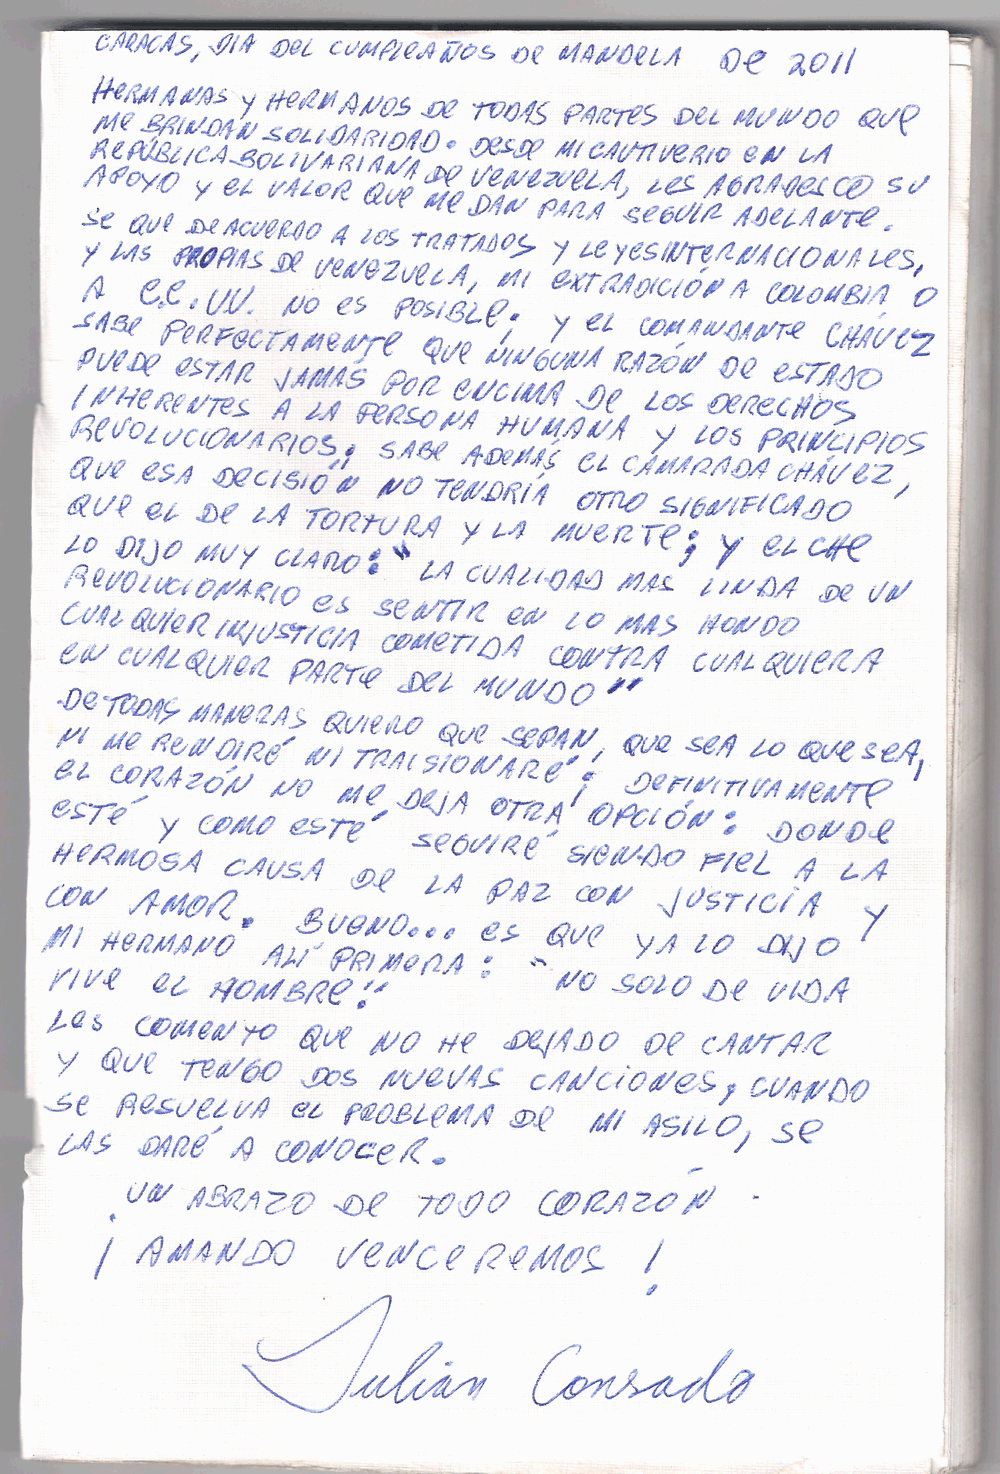 CARACAS, DIA DEL CUMPLEAÑOS DE MANDELA DE 2011
HERMANAS Y HERMANOS DE TODAS PARTES DEL MUNDO QUE
ME BRINDAN SOLIDARIDAD. DESDE MI CAUTIVERIO EN LA
REPÚBLICA BOLIVARIANA DE VENEZUELA, LES AGRADESCO SU
APOYO Y EL VALOR QUE ME DAN PARA SEGUIR ADELANTE.
SE QUE DE ACUERDO A LOS TRATADOS Y LEYES INTERNACIONALES,
Y LAS PROPIAS DE VENEZUELA, MI EXTRADICIÓN A COLOMBIA O
A EE.UU. NO ES POSIBLE; Y EL COMANDANTE CHÁVEZ
SABE PERFECTAMENTE QUE NINGUNA RAZÓN DE ESTADO
PUEDE ESTAR JAMÁS POR ENCIMA DE LOS DERECHOS
INHERENTES A LA PERSONA HUMANA Y LOS PRINCIPIOS
REVOLUCIONARIOS; SABE ADEMÁS EL CAMARADA CHÁVEZ,
QUE ESA DECISIÓN NO TENDRÍA OTRO SIGNIFICADO
QUE EL DE LA TORTURA Y LA MUERTE; Y EL CHE
LO DIJO MUY CLARO: "LA CUALIDAD MAS LINDA DE UN
REVOLUCIONARIO ES SENTIR EN LO MAS HONDO
CUALQUIER INJUSTICIA COMETIDA CONTRA CUALQUIERA
EN CUALQUIER PARTE DEL MUNDO"
DE TODAS MANERAS QUIERO QUE SEPAN, QUE SEA LO QUE SEA,
NI ME RENDIRÉ NI TRAISIONARÉ; DEFINITIVAMENTE
EL CORAZÓN NO ME DEJA OTRA OPCIÓN: DONDE
ESTÉ Y COMO ESTÉ SEGUIRÉ SIENDO FIEL A LA
HERMOSA CAUSA DE LA PAZ CON JUSTICIA Y
CON AMOR. BUENO... ES QUE YA LO DIJO
MI HERMANO ALÍ PRIMERA: "NO SOLO DE VIDA
VIVE EL HOMBRE!"
LES COMENTO QUE NO HE DEJADO DE CANTAR
Y QUE TENGO DOS NUEVAS CANCIONES; CUANDO
SE RESUELVA EL PROBLEMA DE MI ASILO, SE
LAS DARÉ A CONOCER.
UN ABRAZO DE TODO CORAZÓN.
¡AMANDO VENCEREMOS!
Julián Conrado